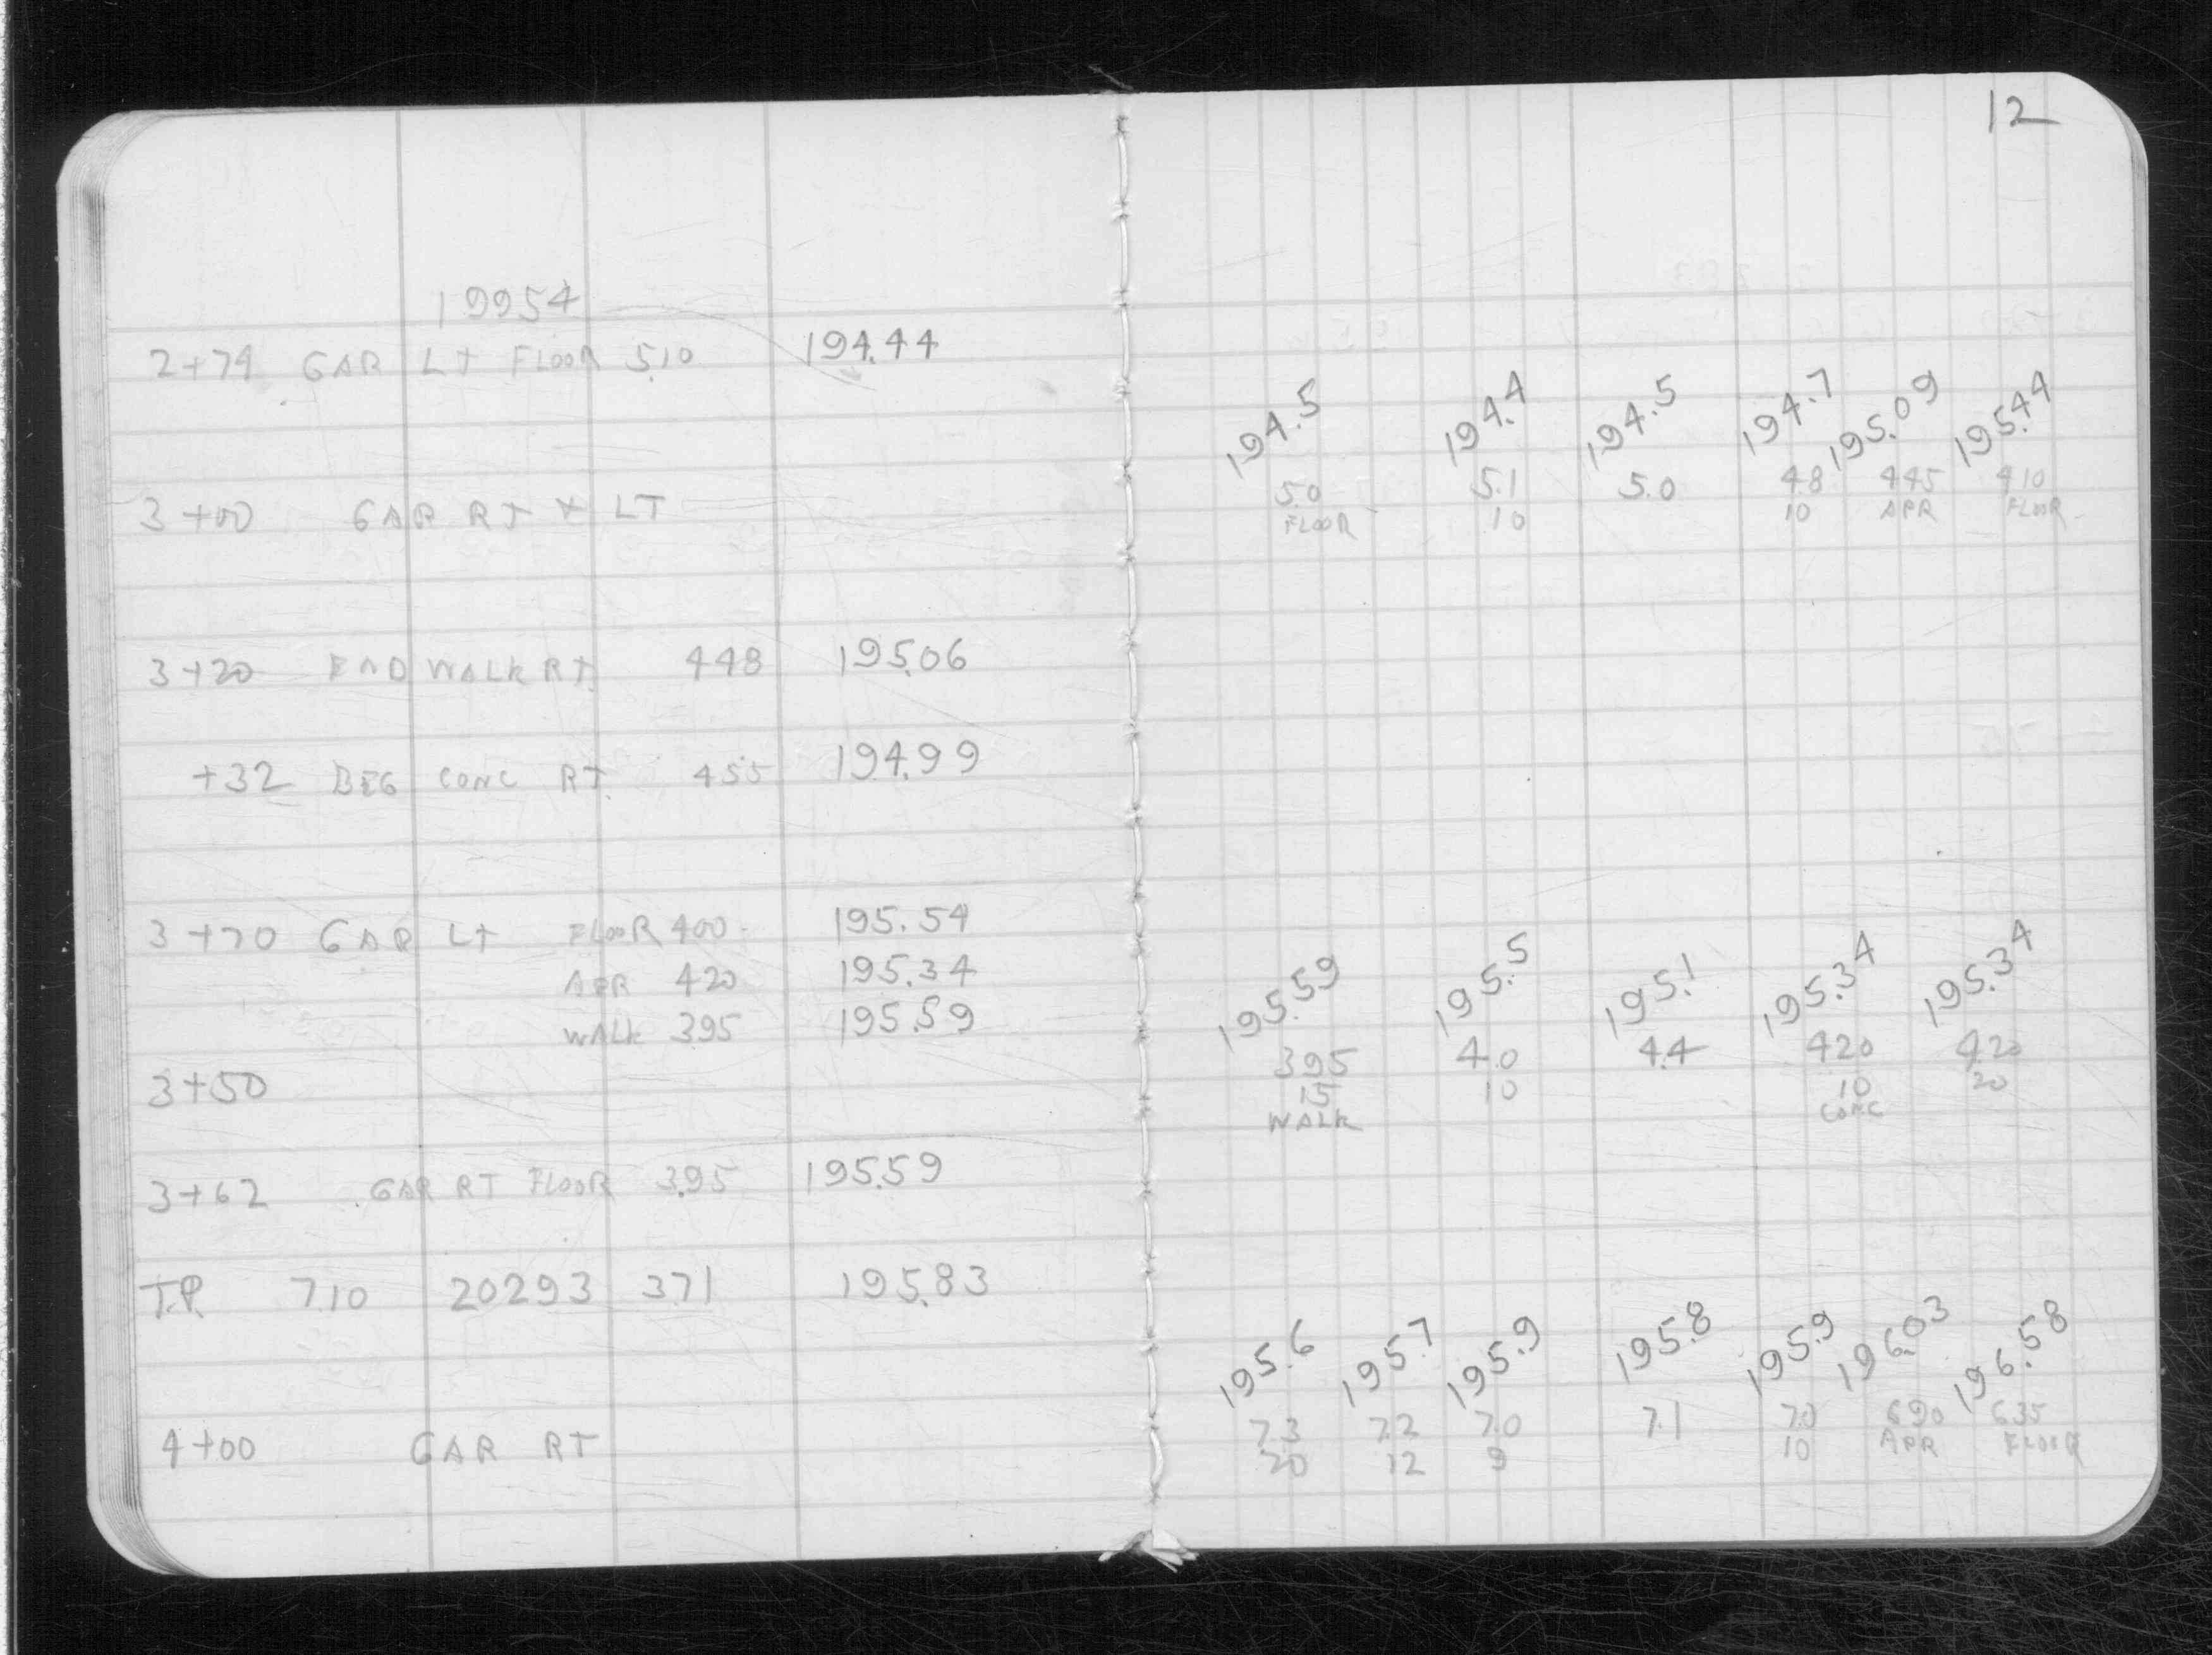 12
19954
2+74 GAR LT FLOOR 5.10 194.44
194.5 194.4 194.5 194.7 195.09 195.44
3+00 GAR RT & LT 5.0 5.1 5.0 4.8 4.45 4.10
FLOOR 10 10 APR FLOOR
3+20 END WALK RT. 448 195.06
+32 BEG CONC RT. 455 194.99
3+70 GAR LT FLOOR 400 195.54
APR 420 195.34
WALK 395 195.59
195.59 195.5 195.1 195.34 195.34
3+50 395 4.0 4.4 420 420
15 10 10 20
WALK CONC
3+62 GAR RT FLOOR 3.95 195.59
T.P. 7.10 20293 371 195.83
195.6 195.7 195.9 195.8 195.9 196.03 196.58
4+00 GAR RT 7.3 7.2 7.0 7.1 7.0 690 635
20 12 9 10 APR FLOOR